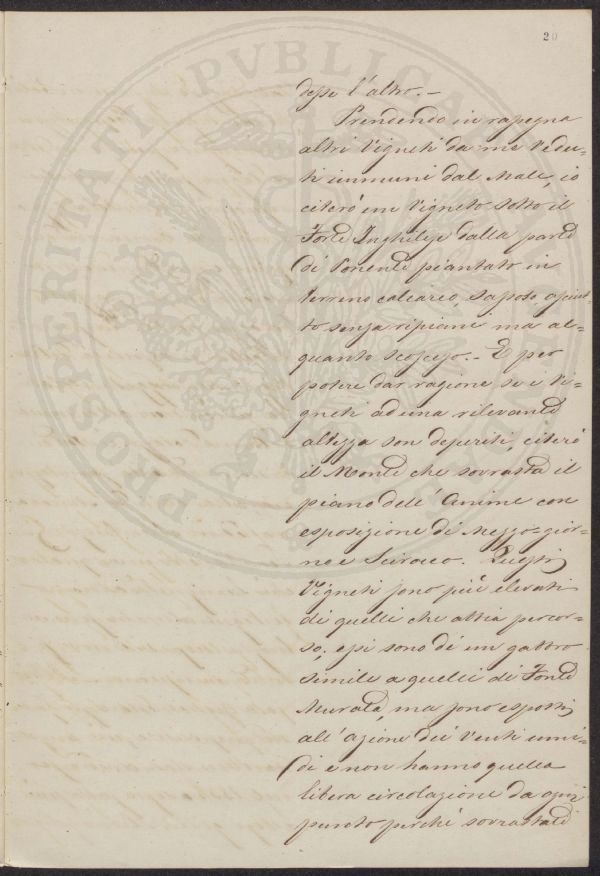 20
desse l'altro. —
Prendendo in rassegna
altri Vigneti da me Vedu=
ti immuni dal Male, io
citerò un Vigneto sotto il
Forte Inghilese dalla parte
di Ponente piantato in
terreno calcareo, sassoso,
to senza ripiani ma al=
quanto scosceso. — E per
potere dar ragione se i Vi=
gneti ad una rilevante
altezza son deperiti, citerò
il Monte che sovrasta il
piano dell'Anime con
esposizione di Mezzo gior=
no e Scirocco. Questi
Vigneti sono più elevati
di quelli che abbia percor=
so; essi sono di un gattro
simile a quelli di Fonte
Murata, ma sono esposti
all'azione dei Venti umi=
di e non hanno quella
libera circolazione da ogni
punto perché sovrastati
PROSPERITATI PVBLICAE